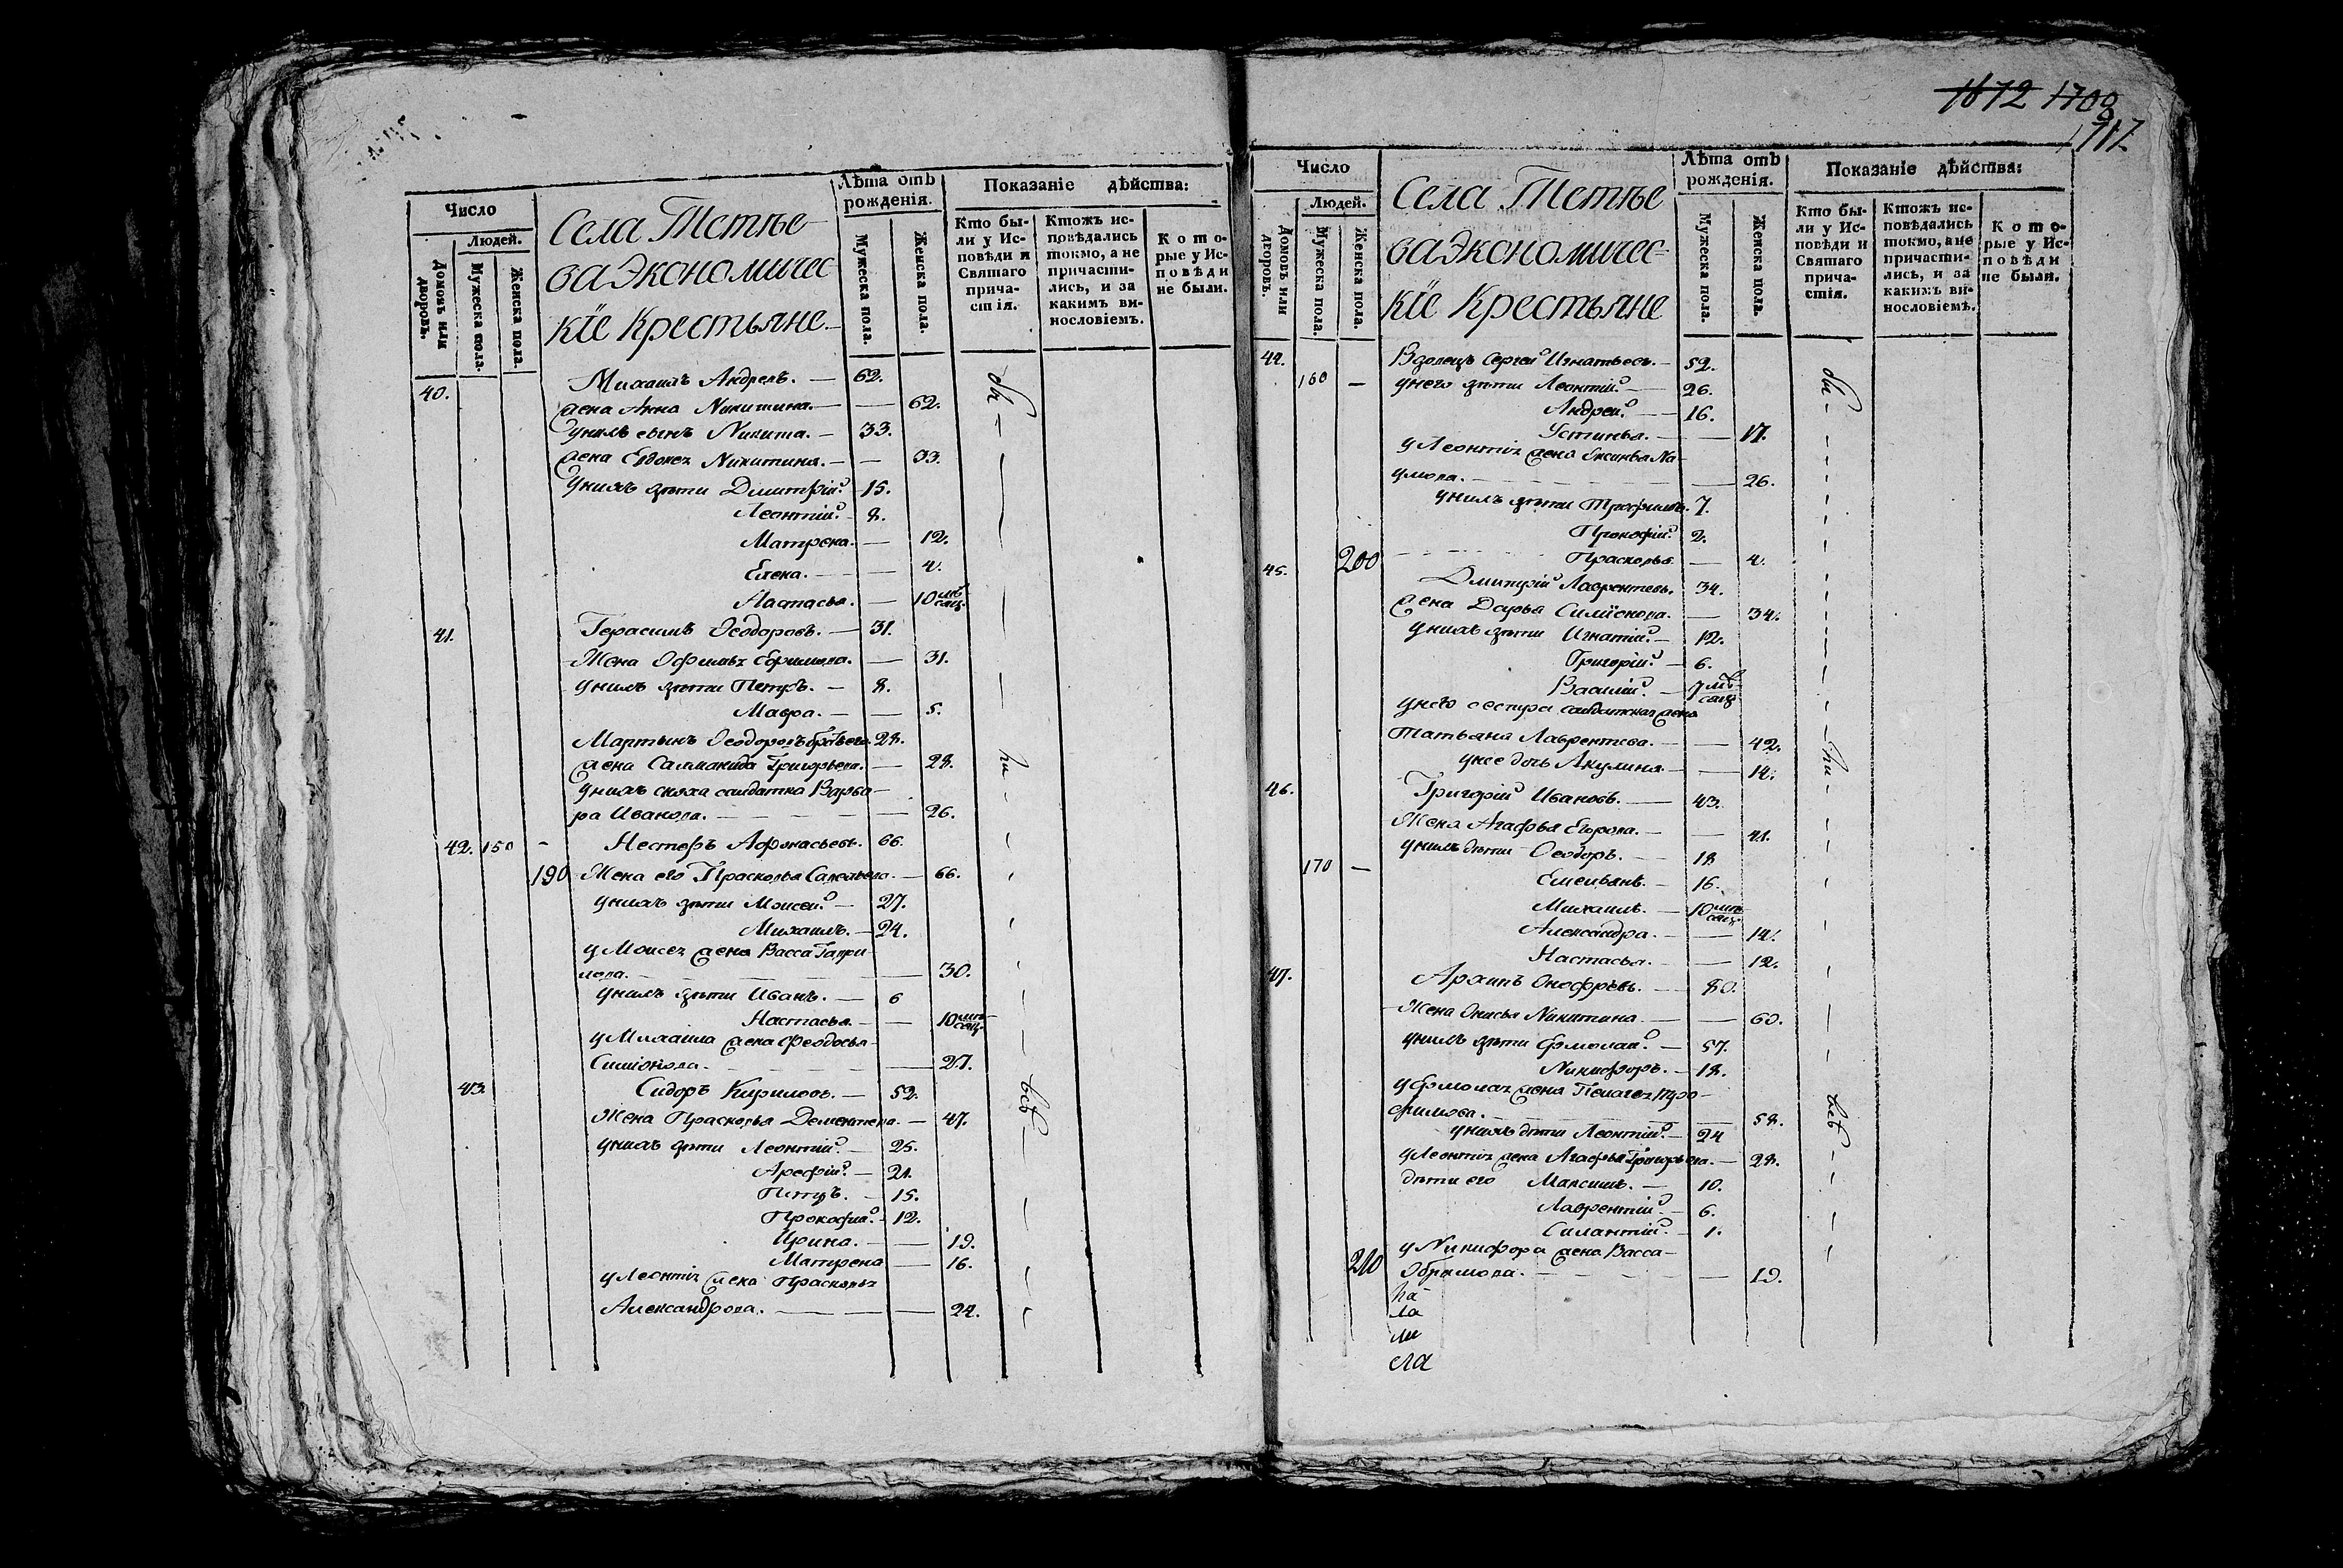 Число
Людей.
Домовъ или дворовъ.
Мужеска пола.
Женска пола.
Села Тетье-
ва Экономичес
кїе Крестьяне
Лѣта отъ рожденія.
Мужеска пола.
Женска пола.
Показаніе дѣйства:
Кто бы-
ли у Ис-
повѣди и
Святаго
прича-
стія.
Ктожъ ис-
повѣдались
токмо, а не
причасти-
лись, и за
какимъ ви-
нословіемъ.
Кото-
рые у Ис-
повѣди
не были.
40. Михаилъ Андреевъ. — 62.
жена Анна Никитина. — 62.
у нихъ сынъ Никита. — 33.
жена Евдокея Никитина. — 33.
у нихъ дѣти Димитрій. 15.
Леонтій. 8.
Матрена. — 12.
Елена. — 4.
Настасья. — 10 мѣсяц.
41. Герасимъ Ѳеодоровъ. — 31.
Жена Офимья Ефимова. — 31.
у нихъ дѣти Петръ. — 8.
Мавра. — 5.
Мартынъ Ѳеодоровъ братъ его 28.
жена Саламанида Григорьева. — 28.
у нихъ сноха солдатка Варва-
ра Иванова. — 26.
42. 150 - Нестеръ Афонасьевъ. 66.
190 Жена его Прасковья Савельева. — 66.
у нихъ дѣти Моисей. — 27.
Михаилъ. — 24.
у Моисея жена Васса Гаври-
лова. — 30.
у нихъ дѣти Иванъ. — 6
Настасья. — 10 мѣсяц.
у Михаила жена Феодосья
Симіонова. — 27.
43. Сидоръ Кириловъ. — 52.
Жена Прасковья Дементьева. — 47.
у нихъ дѣти Леонтій. — 25.
Арефій. — 21.
Петръ. — 15.
Прокофій. — 12.
Ирина. — 19.
Матрена — 16.
у Леонтія жена Прасковья
Александрова. — 24.
бы
ли
всѣ
1672 1708
1717.
Число
Людей.
Домовъ или дворовъ.
Мужеска пола.
Женска пола.
Села Тетье
ва Экономичес-
кїе Крестьяне
Лѣта отъ рожденія.
Мужеска пола.
Женска пола.
Показаніе дѣйства:
Кто бы-
ли у Ис-
повѣди и
Святаго
прича-
стія.
Ктожъ ис-
повѣдались
токмо, а не
причасти-
лись, и за
какимъ ви-
нословіемъ.
Кото-
рые у Ис-
повѣди
не были.
44. Вдовецъ Сергей Игнатьевъ. — 52.
160 — у него дѣти Леонтій. — 26.
Андрей. — 16.
Устинья. — 17.
у Леонтія жена Ксинья На-
умова. — 26.
у нихъ дѣти Трофимъ. 7.
Прокофій. 2.
200 Прасковья — 4.
45. Димитрій Лаврентьевъ. 34.
жена Дарья Симіонова. — 34.
у нихъ дѣти Игнатій. — 12.
Григорій. — 6.
Василій. — 7 мѣсяц
у него сестра солдатская жена
Татьяна Лаврентьева. — 42.
у нее дочь Акулина — 14.
46. Григорій Ивановъ. — 43.
Жена Агафья Егорова. — 41.
у нихъ дѣти Ѳеодоръ. — 18
170 — Емельянъ. — 16.
Михаилъ. — 10 мѣсяц.
Александра. — 14.
Настасья. — 12.
47. Архипъ Онофревъ. — 80.
Жена Онисья Никитина — 60.
у нихъ дѣти Ермолай. — 57.
Никифоръ. — 18.
у Ермолая жена Пелагея Тро-
фимова. — 58.
у нихъ дѣти Леонтій. — 24
у Леонтія жена Агафья Григорьева. — 28.
дѣти его Максимъ. — 10.
Лаврентій. — 6.
Силантій. — 1.
у Никифора жена Васса
210 Обрамова. — 19.
бы
ли
всѣ
ла
ли
ела